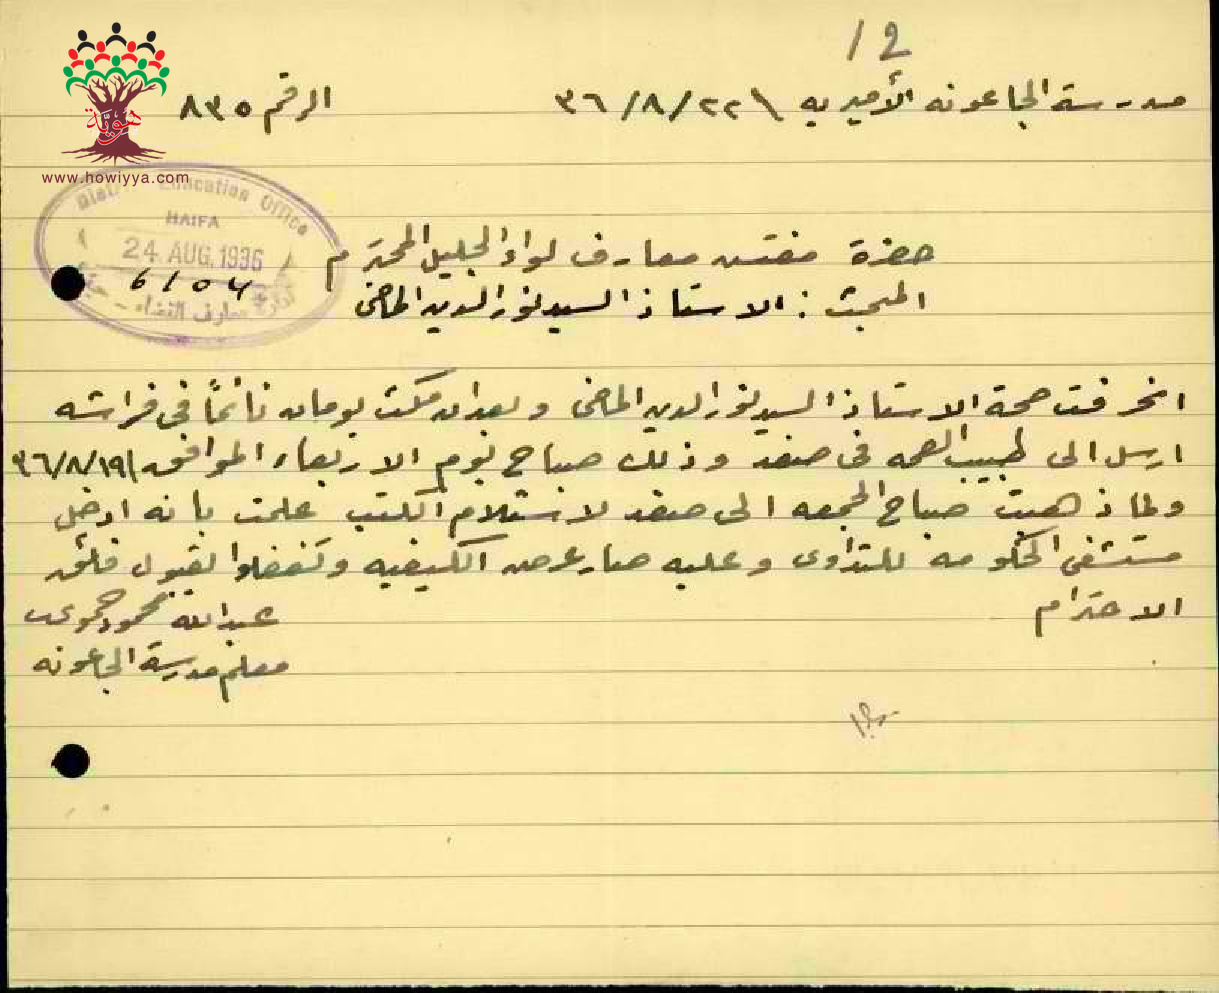 12
مدرسة الجاعونه الأميريه ٢٢/٨/٣٦ الرقم ٨٣٥
هويّة
www.howiyya.com
District Education Office
HAIFA
24 AUG. 1936
معارف القضاء
حضرة مفتش معارف لواء الجليل المحترم
المبحث : الاستاذ السيد نور الدين الماضي
انحرفت صحة الاستاذ السيد نور الدين الماضي وبعد ان مكث يومان نائماً في فراشه
ارسل الى طبيب الصحه في صفد وذلك صباح يوم الاربعاء الموافق ١٩/٨/٣٦
ولما ذهبت صباح الجمعه الى صفد لاستلام الكتب علمت بانه ادخل
مستشفى الحكومه للتداوي وعليه صار عرض الكيفيه وتفضلوا بقبول فائق
الاحترام
عبدالله محمود
معلم مدرسة الجاعونه